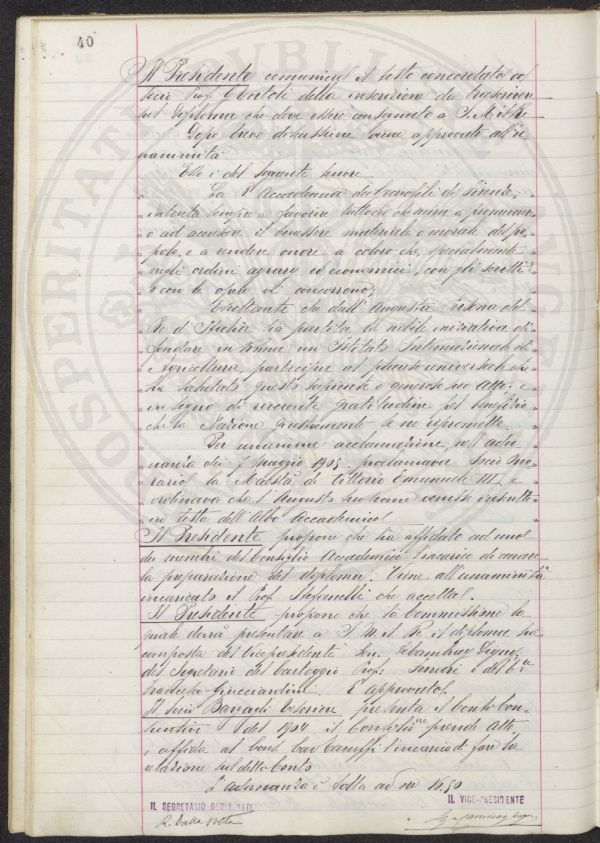 40
Il Presidente comunica il testo concordato col
socio Prof. G Bertoli della inscrizione da trascrivere
nel Diploma che deve essere consegnato a S. M. il Re
Dopo breve discussione viene approvato all'u-
nanimità
Esso è del seguente tenore
" La R. Accademia dei Georgofili di Firenze,
" intenta sempre a favorire tuttociò che mira a
" e ad accrescere il benessere materiale e morale del po-
" polo, e a rendere onore a coloro che, specialmente
" negli ordini agrarj ed economici, con gli scritti
" o con le opere vi concorrono;
" Esultante che dall'Augusta Persona del
" Re d'Italia sia partita la nobile iniziativa di
" fondare in Roma un Istituto Internazionale di
" Agricoltura, partecipa al plauso universale che
" ha salutato questo sapiente e generoso suo atto: e
" in segno di reverente gratitudine pel beneficio
" che la Nazione giustamente se ne ripromette
" Per unanime acclamazione, nell'adu-
" nanza dei 7 Maggio 1905, proclamava Socio Ono-
" rario la Maestà di Vittorio Emanuele III, e
" ordinava che l'Augusto suo nome venisse inscritto
" in testa dell'Albo Accademico
Il Presidente propone che sia affidato ad uno
dei membri del Consiglio Accademico l'incarico di curare
la preparazione del diploma. Viene all'unanimità
incaricato il Prof. Stefanelli che accetta.
Il Presidente propone che la Commissione la
quale dovrà presentare a S. M. il Re il diploma sia
composta del Vicepresidente Sen. Cambray Digny,
del Segretario del Carteggio Prof. e del
Guicciardini. È approvato.
Il socio presenta il Conto Con-
suntivo del 1904 il Consiglio ne prende atto,
e affida al Cons. Cav l'incarico di fare la
relazione sul detto Conto
L'adunanza è sciolta ad ore 16.50
IL SEGRETARIO DEGLI ATTI
IL VICE-PRESIDENTE
R. Dalla Volta